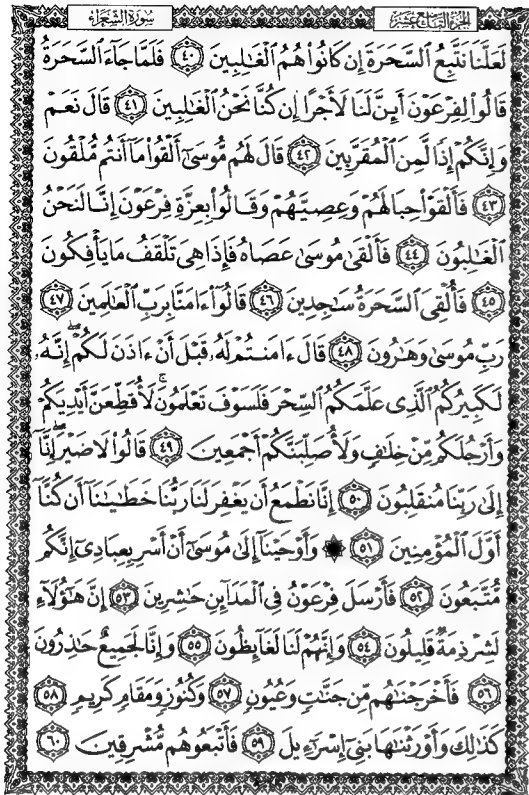 سُورَةُ الشُّعَرَاءِ
الجُزْءُ التَّاسِعَ عَشَرَ
لَعَلَّنَا نَتَّبِعُ ٱلسَّحَرَةَ إِن كَانُوا۟ هُمُ ٱلْغَـٰلِبِينَ ٤٠ فَلَمَّا جَآءَ ٱلسَّحَرَةُ
قَالُوا۟ لِفِرْعَوْنَ أَئِنَّ لَنَا لَأَجْرًا إِن كُنَّا نَحْنُ ٱلْغَـٰلِبِينَ ٤١ قَالَ نَعَمْ
وَإِنَّكُمْ إِذًا لَّمِنَ ٱلْمُقَرَّبِينَ ٤٢ قَالَ لَهُم مُّوسَىٰٓ أَلْقُوا۟ مَآ أَنتُم مُّلْقُونَ
٤٣ فَأَلْقَوْا۟ حِبَالَهُمْ وَعِصِيَّهُمْ وَقَالُوا۟ بِعِزَّةِ فِرْعَوْنَ إِنَّا لَنَحْنُ
ٱلْغَـٰلِبُونَ ٤٤ فَأَلْقَىٰ مُوسَىٰ عَصَاهُ فَإِذَا هِىَ تَلْقَفُ مَا يَأْفِكُونَ
٤٥ فَأُلْقِىَ ٱلسَّحَرَةُ سَـٰجِدِينَ ٤٦ قَالُوٓا۟ ءَامَنَّا بِرَبِّ ٱلْعَـٰلَمِينَ ٤٧
رَبِّ مُوسَىٰ وَهَـٰرُونَ ٤٨ قَالَ ءَامَنتُمْ لَهُۥ قَبْلَ أَنْ ءَاذَنَ لَكُمْ ۖ إِنَّهُۥ
لَكَبِيرُكُمُ ٱلَّذِى عَلَّمَكُمُ ٱلسِّحْرَ فَلَسَوْفَ تَعْلَمُونَ ۚ لَأُقَطِّعَنَّ أَيْدِيَكُمْ
وَأَرْجُلَكُم مِّنْ خِلَـٰفٍ وَلَأُصَلِّبَنَّكُمْ أَجْمَعِينَ ٤٩ قَالُوا۟ لَا ضَيْرَ ۖ إِنَّآ
إِلَىٰ رَبِّنَا مُنقَلِبُونَ ٥٠ إِنَّا نَطْمَعُ أَن يَغْفِرَ لَنَا رَبُّنَا خَطَـٰيَـٰنَآ أَن كُنَّآ
أَوَّلَ ٱلْمُؤْمِنِينَ ٥١ ۞ وَأَوْحَيْنَآ إِلَىٰ مُوسَىٰٓ أَنْ أَسْرِ بِعِبَادِىٓ إِنَّكُم
مُّتَّبَعُونَ ٥٢ فَأَرْسَلَ فِرْعَوْنُ فِى ٱلْمَدَآئِنِ حَـٰشِرِينَ ٥٣ إِنَّ هَـٰٓؤُلَآءِ
لَشِرْذِمَةٌ قَلِيلُونَ ٥٤ وَإِنَّهُمْ لَنَا لَغَآئِظُونَ ٥٥ وَإِنَّا لَجَمِيعٌ حَـٰذِرُونَ
٥٦ فَأَخْرَجْنَـٰهُم مِّن جَنَّـٰتٍ وَعُيُونٍ ٥٧ وَكُنُوزٍ وَمَقَامٍ كَرِيمٍ ٥٨
كَذَٰلِكَ وَأَوْرَثْنَـٰهَا بَنِىٓ إِسْرَٰٓءِيلَ ٥٩ فَأَتْبَعُوهُم مُّشْرِقِينَ ٦٠